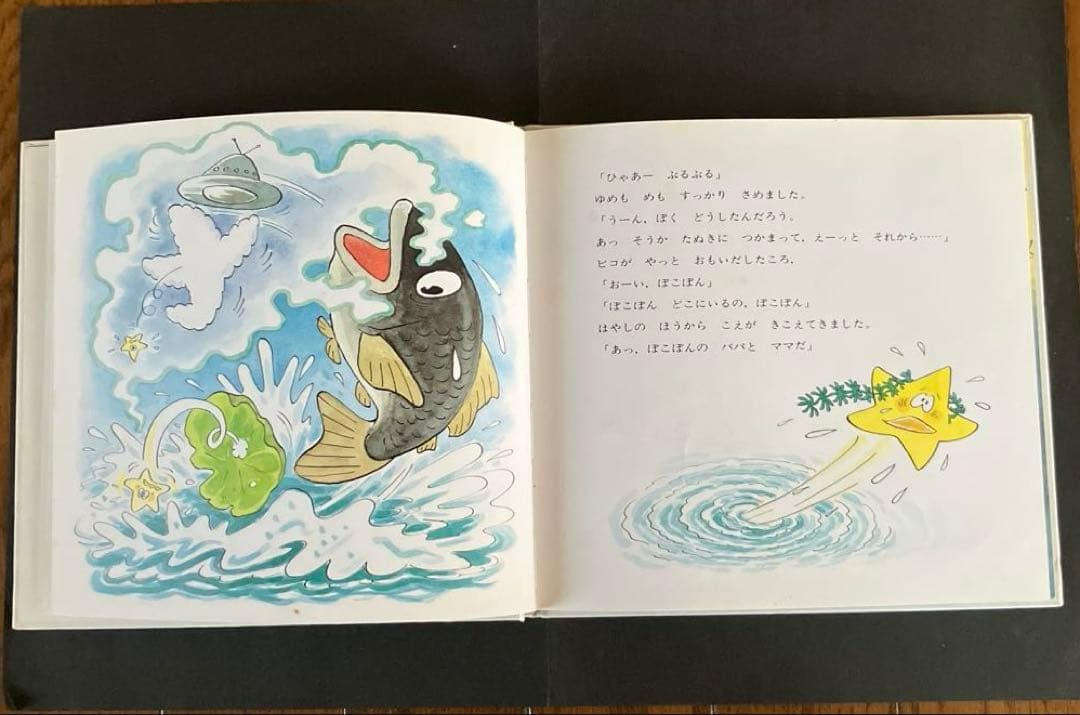 「ひゃあー　ぶるぶる」
ゆめも　めも　すっかり　さめました。
「うーん、ぼく　どうしたんだろう。
あっ　そうか　たぬきに　つかまって、えーっと　それから……」
ピコが　やっと　おもいだしたころ、
「おーい、ぽこぽん」
「ぽこぽん　どこにいるの、ぽこぽん」
はやしの　ほうから　こえが　きこえてきました。
「あっ、ぽこぽんの　パパと　ママだ」